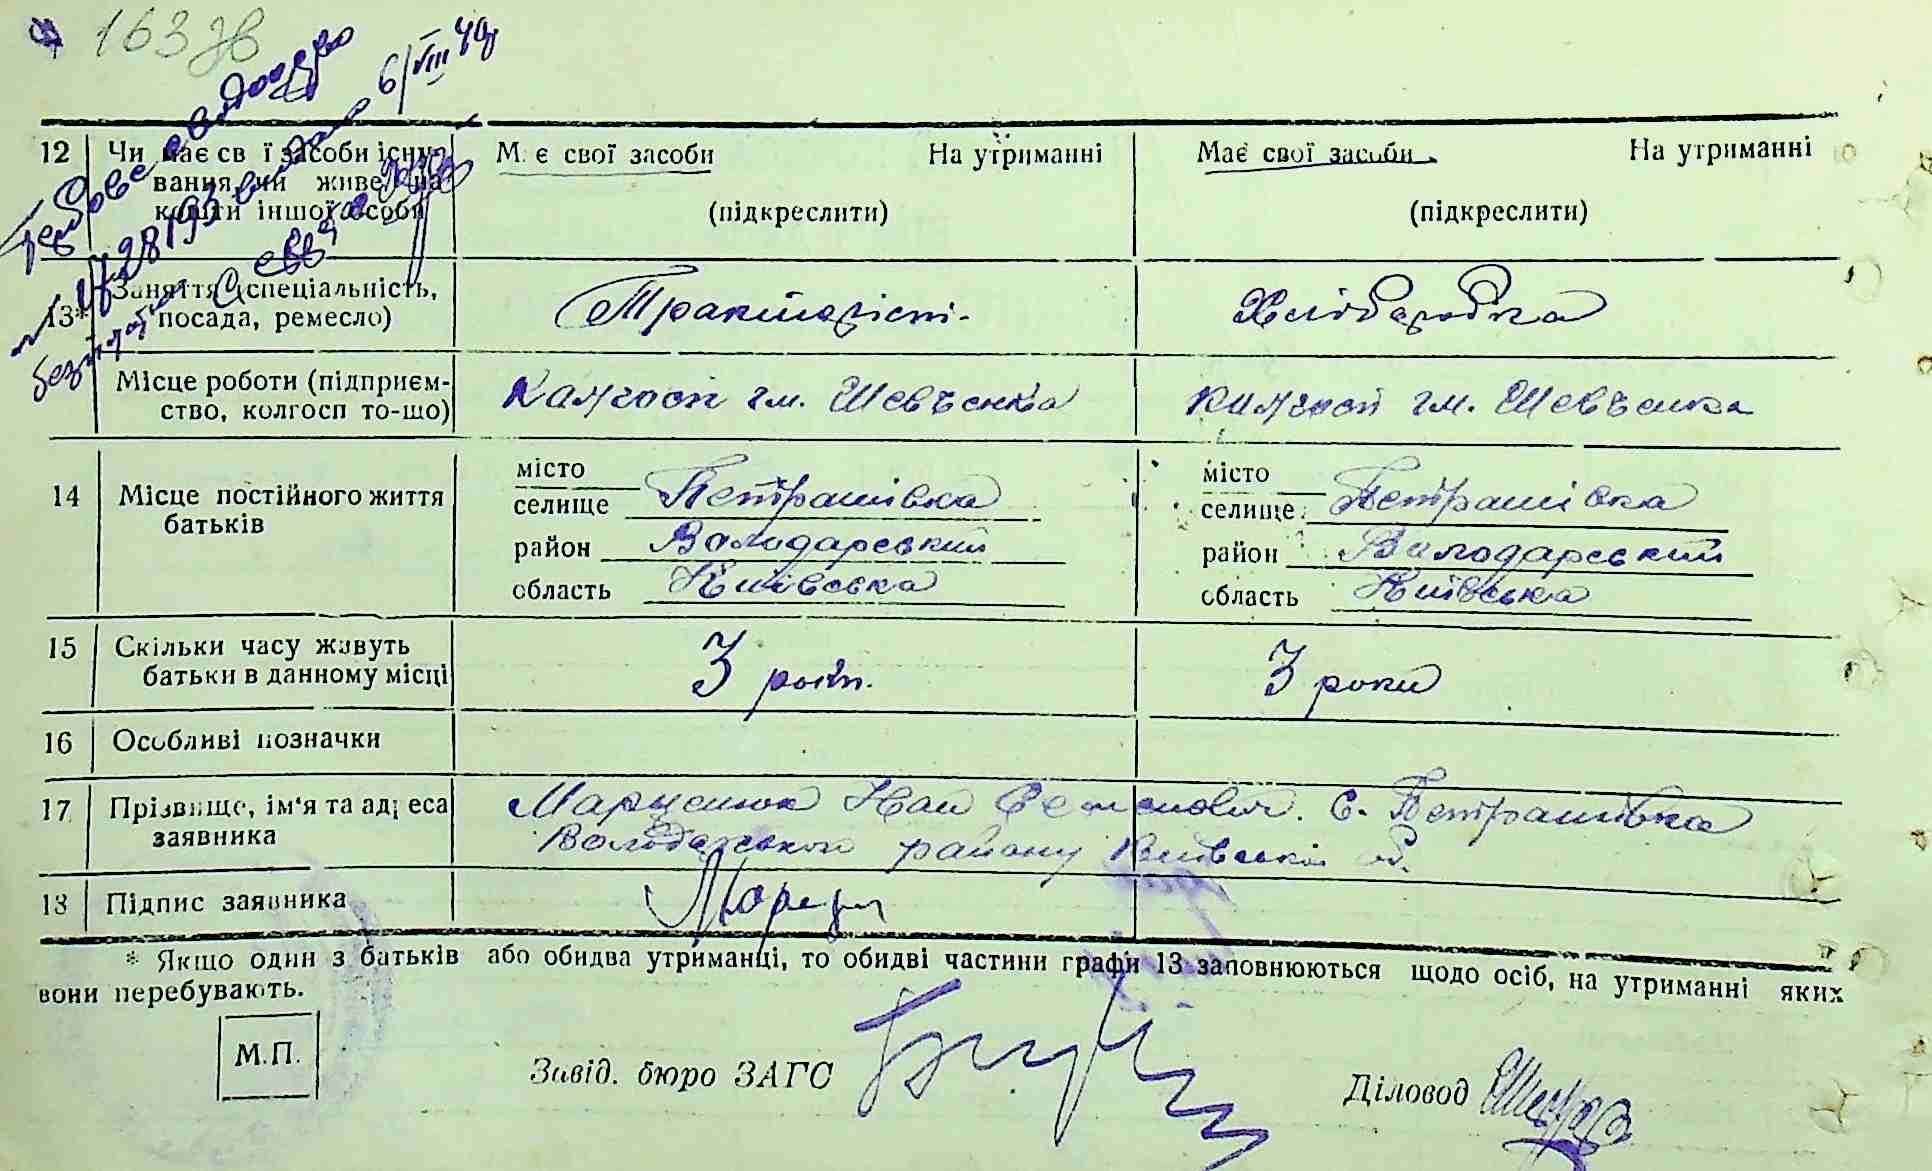 163
6/VIII 49
12 Чи має св ї засоби існу-
вання, чи живе на
кошти іншої особи
М є свої засоби На утриманні
(підкреслити)
Має свої засоби На утриманні
(підкреслити)
13* Заняття (спеціальність,
посада, ремесло)
Тракторист.
Хліборобка
Місце роботи (підприєм-
ство, колгосп то-що)
Колгосп ім. Шевченка
колгосп ім. Шевченка
14 Місце постійного життя
батьків
місто
селище Петрашівка
район Володарський
область Київська
місто
селище Петрашівка
район Володарський
область Київська
15 Скільки часу живуть
батьки в данному місці
3 роки.
3 роки
16 Особливі позначки
17 Прізвище, ім'я та адреса
заявника
Марценюк Іван Семенович. С. Петрашівка
Володарського району Київської об.
18 Підпис заявника
* Якщо один з батьків або обидва утриманці, то обидві частини графи 13 заповнюються щодо осіб, на утриманні яких
вони перебувають.
М.П.
Завід. бюро ЗАГС
Діловод